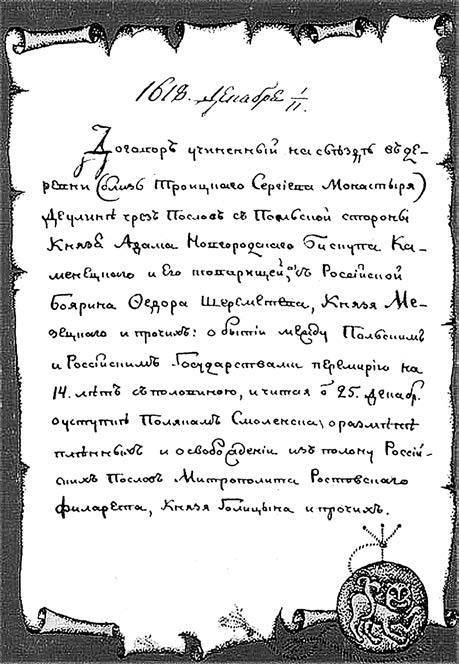 1618. Декабря 1/11.
Договоръ учиненный на съѣздѣ въ де-
ревни (близь Троицкаго Сергіева Монастыря)
Деулинѣ чрезъ Пословъ съ Польской стороны
Князя Адама Новгородскаго Бискупа Ка-
менецкаго и Его товарищей, а съ Россійской
Боярина Ѳедора Шереметева, Князя Ме-
зецкаго и прочихъ: о бытіи между Польскимъ
и Россійскимъ Государствами перемирію на
14. лѣтъ съ половиною, считая ѿ 25. Декабр.
о уступкѣ Полякамъ Смоленска, о размѣнѣ
плѣнныхъ и освобожденіи изъ полону Россій-
скихъ Пословъ Митрополита Ростовскаго
Филарета, Князя Голицына и прочихъ.